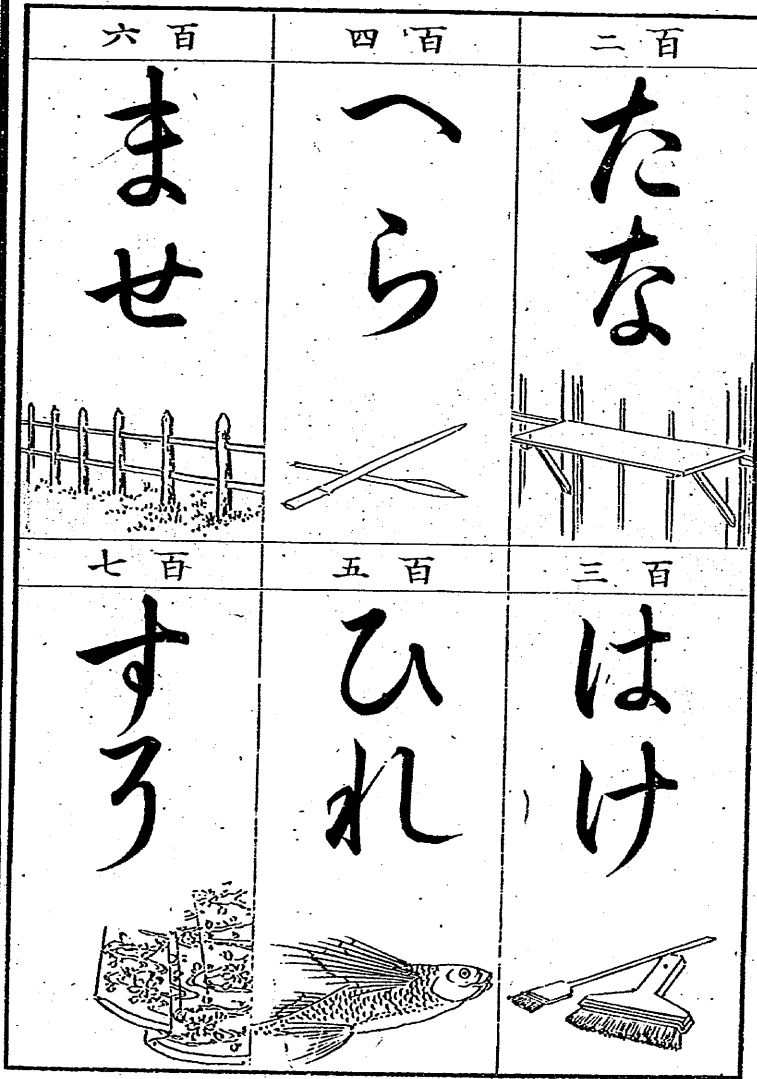 百二
たな
百三
はけ
百四
へら
百五
ひれ
百六
ませ
百七
すそ